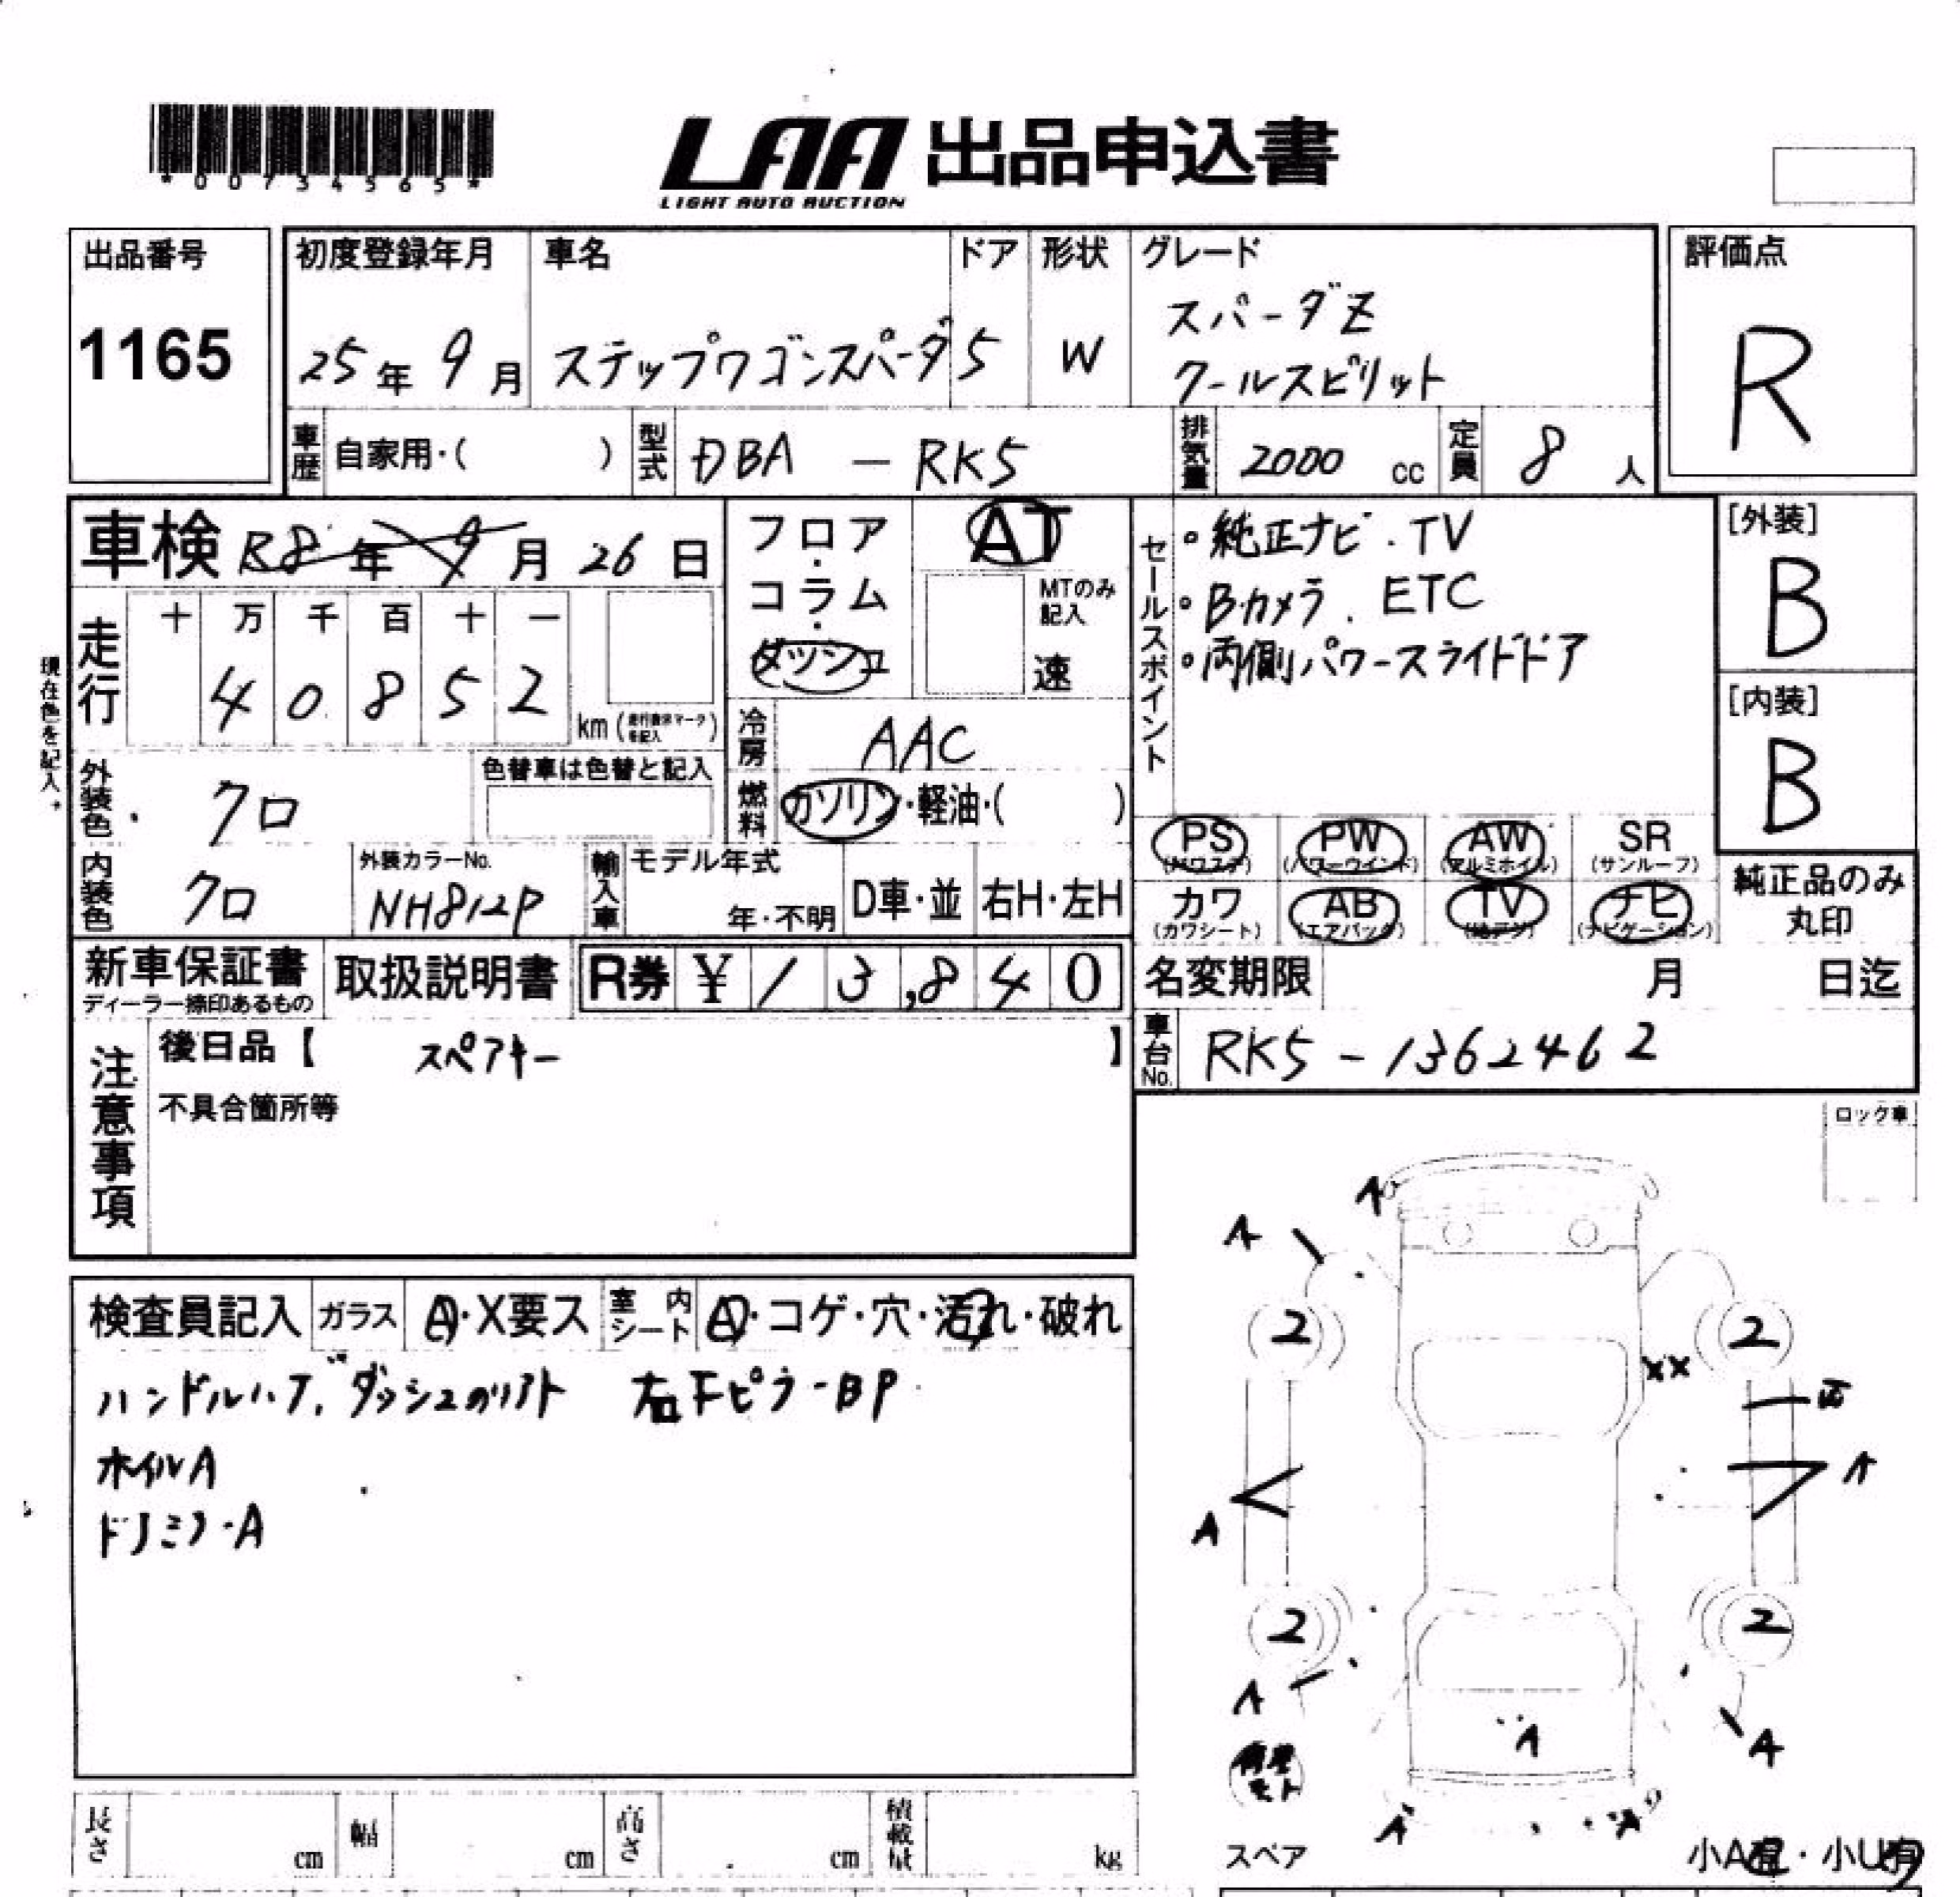 *00734565*
LAA 出品申込書
LIGHT AUTO AUCTION
出品番号
1165
初度登録年月 車名 ドア 形状 グレード
25年 9月 ステップワゴンスパーダ 5 W スパーダZ
クールスピリット
評価点
R
車歴 自家用・( ) 型式 DBA - RK5 排気量 2000 cc 定員 8 人
車検 R8年 9月 26日
フロア・コラム・ダッシュ
AT
MTのみ記入
速
セールスポイント
・純正ナビ.TV
・Bカメラ.ETC
・両側パワースライドドア
[外装]
B
[内装]
B
現在色を記入。
走行 十 万 千 百 十 一
4 0 8 5 2 km (走行表示マークを記入)
冷房 AAC
外装色 クロ 色替車は色替と記入
燃料 ガソリン・軽油・( )
内装色 クロ 外装カラーNo. NH812P
輸入車 モデル年式 年・不明 D車・並 右H・左H
PS (パワステ) PW (パワーウインド) AW (アルミホイル) SR (サンルーフ)
カワ (カワシート) AB (エアバッグ) TV (地デジ) ナビ (ナビゲーション)
純正品のみ丸印
新車保証書 ディーラー捺印あるもの 取扱説明書 R券 ¥13,840
名変期限 月 日迄
車台No. RK5-1362462
注意事項
後日品【 スペアキー 】
不具合箇所等
ロック車
検査員記入 ガラス A・X要ス 室内シート A・コゲ・穴・汚れ・破れ
ハンドルハゲ、ダッシュのリフト 右下ピラーBP
ホイルA
ドアミラーA
A
A
2 2
XX
A
A
2 2
A
A
A
A
A
スペア
小A有・小U有
長さ cm 幅 cm 高さ cm 積載量 kg